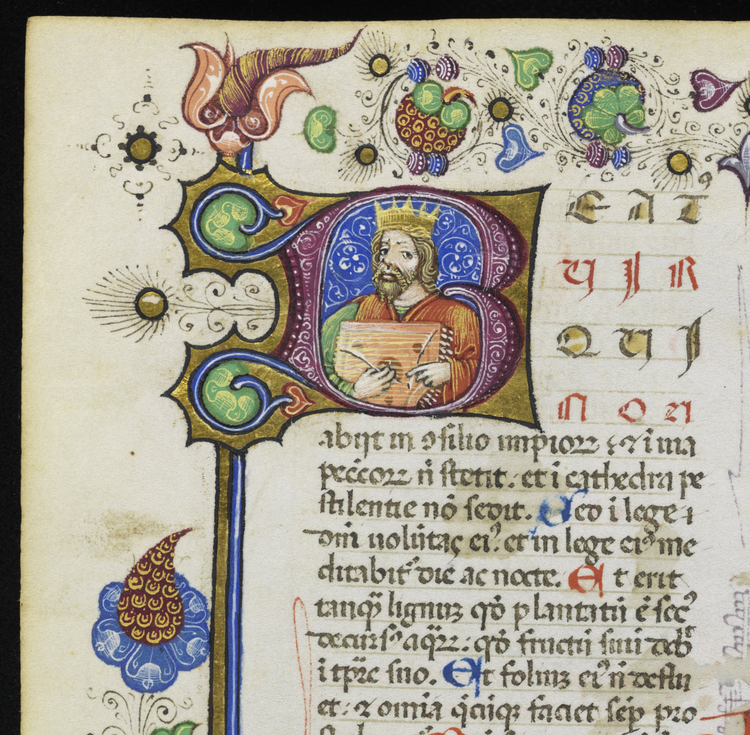 B EATꝰ
UIR
QUI
NON
abijt in ꝯsilio impioꝝ ⁊ i uia
pecc̄oꝝ n̄ stetit. et i cathedra pe
stilentie nō sedit. Sed i lege
dn̄i uolūtas eiꝰ. et in lege eiꝰ me
ditabit᷑ die ac nocte. Et erit
tanqꝫ lignuꝫ qđ plantatū ē secꝰ
decursꝰ aqꝝ: qđ fructū suū dab̄
i tp̄re suo. Et foliuꝫ eiꝰ n̄ deflu
et: ⁊ omīa q̄cūqꝫ faciet sēp pro